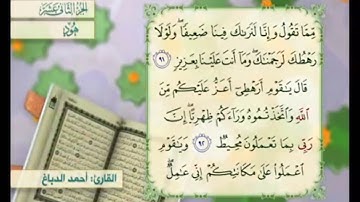 الجزء الثاني عشر
هُود
مِّمَّا تَقُولُ وَإِنَّا لَنَرَىٰكَ فِينَا ضَعِيفًا ۖ وَلَوْلَا
رَهْطُكَ لَرَجَمْنَٰكَ ۖ وَمَآ أَنتَ عَلَيْنَا بِعَزِيزٍ ٩١
قَالَ يَٰقَوْمِ أَرَهْطِىٓ أَعَزُّ عَلَيْكُم مِّنَ
ٱللَّهِ وَٱتَّخَذْتُمُوهُ وَرَآءَكُمْ ظِهْرِيًّا ۖ إِنَّ
رَبِّى بِمَا تَعْمَلُونَ مُحِيطٌ ٩٢ وَيَٰقَوْمِ
ٱعْمَلُوا۟ عَلَىٰ مَكَانَتِكُمْ إِنِّى عَٰمِلٌ ۖ
القارئ: أحمد الدباغ